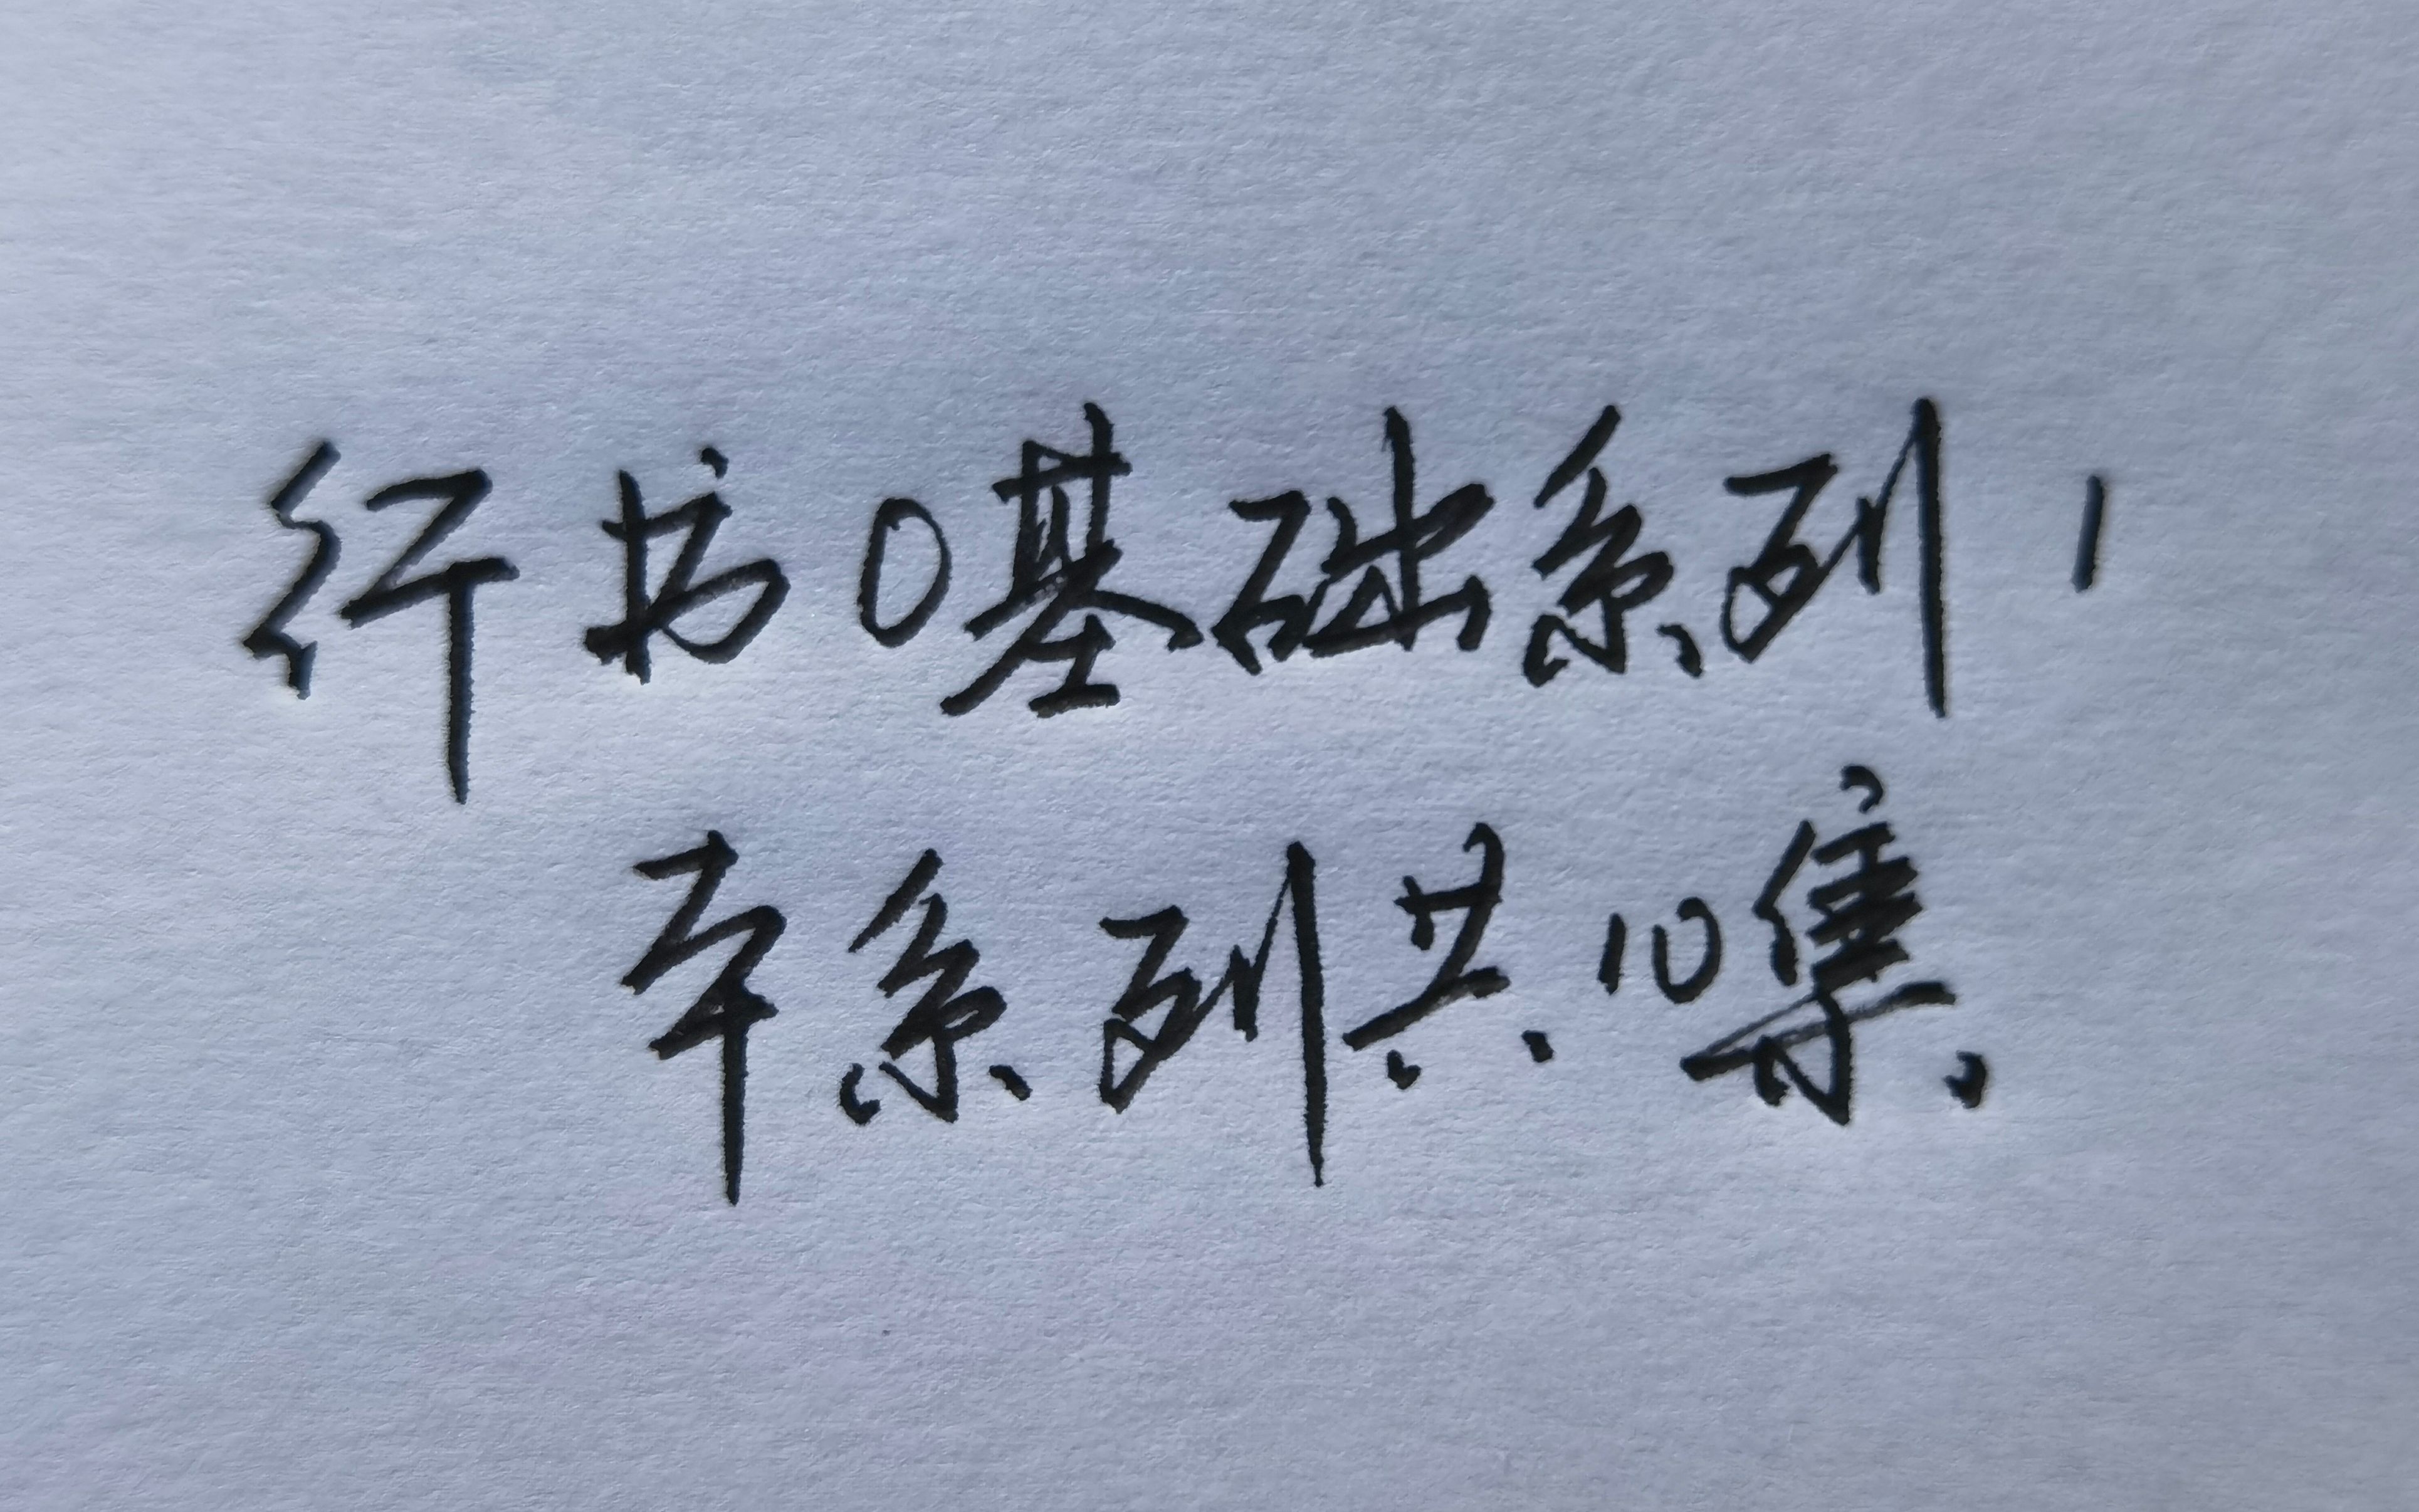 行书0基础系列1
本系列共10集